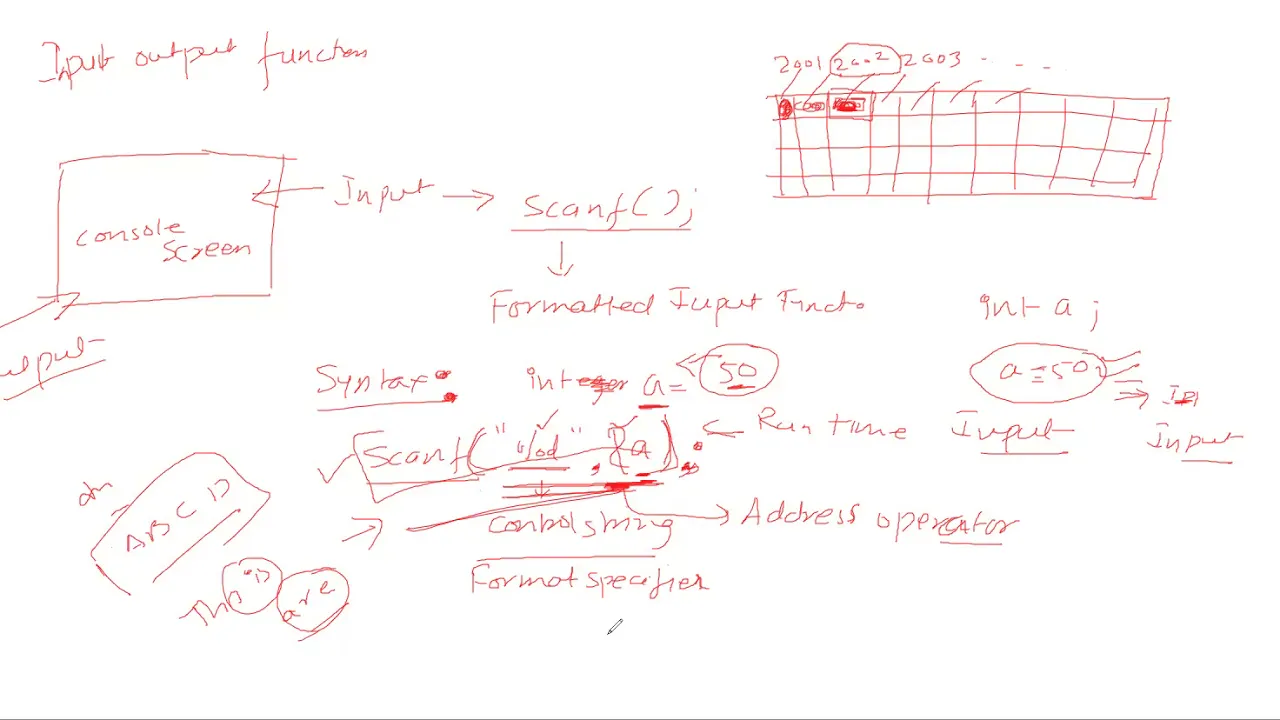 Input output function
2001 2002 2003 - - - -
Input
Scanf( );
console
screen
Formatted Input Functo
int a ;
output
Syntax:
integer a=
50
a = 50
Scanf("%d", &a);
Run time
Input
Input
ABCD
control string
Address operator
Format specifier
are